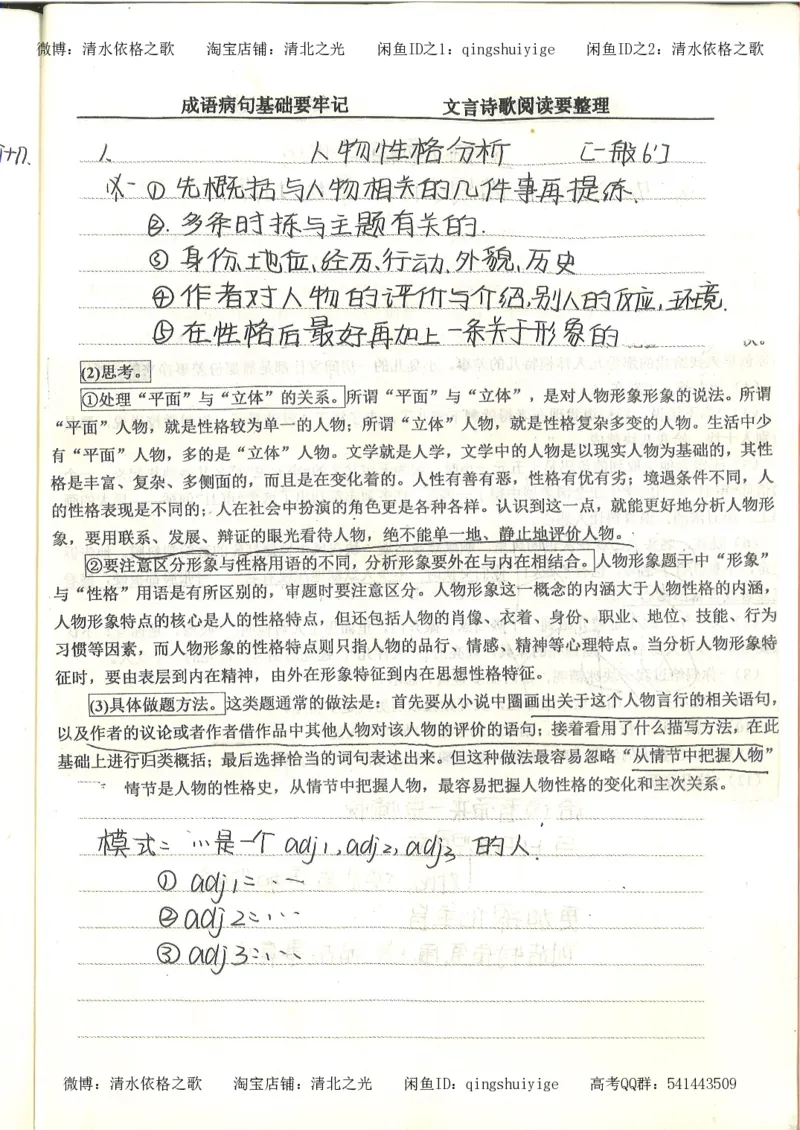 微博：清水依格之歌 淘宝店铺：清北之光 闲鱼ID之1：qingshuiyige 闲鱼ID之2：清水依格之歌
成语病句基础要牢记 文言诗歌阅读要整理
人物性格分析 [一般6']
① 先概括与人物相关的几件事再提练.
②. 多条时拣与主题有关的.
③ 身份、地位、经历、行动、外貌、历史
④ 作者对人物的评价与介绍,别人的反应,环境.
⑤ 在性格后最好再加上一条关于形象的
(2)思考。
①处理“平面”与“立体”的关系。所谓“平面”与“立体”，是对人物形象形象的说法。所谓
“平面”人物，就是性格较为单一的人物；所谓“立体”人物，就是性格复杂多变的人物。生活中少
有“平面”人物，多的是“立体”人物。文学就是人学，文学中的人物是以现实人物为基础的，其性
格是丰富、复杂、多侧面的，而且是在变化着的。人性有善有恶，性格有优有劣；境遇条件不同，人
的性格表现是不同的；人在社会中扮演的角色更是各种各样。认识到这一点，就能更好地分析人物形
象，要用联系、发展、辩证的眼光看待人物，绝不能单一地、静止地评价人物。
②要注意区分形象与性格用语的不同，分析形象要外在与内在相结合。人物形象题干中“形象”
与“性格”用语是有所区别的，审题时要注意区分。人物形象这一概念的内涵大于人物性格的内涵，
人物形象特点的核心是人的性格特点，但还包括人物的肖像、衣着、身份、职业、地位、技能、行为
习惯等因素，而人物形象的性格特点则只指人物的品行、情感、精神等心理特点。当分析人物形象特
征时，要由表层到内在精神，由外在形象特征到内在思想性格特征。
(3)具体做题方法。这类题通常的做法是：首先要从小说中圈画出关于这个人物言行的相关语句，
以及作者的议论或者作者借作品中其他人物对该人物的评价的语句；接着看用了什么描写方法，在此
基础上进行归类概括；最后选择恰当的词句表述出来。但这种做法最容易忽略“从情节中把握人物”
情节是人物的性格史，从情节中把握人物，最容易把握人物性格的变化和主次关系。
模式: …是一个 adj1, adj2, adj3 的人.
① adj1:…
② adj2:…
③ adj3:…
微博：清水依格之歌 淘宝店铺：清北之光 闲鱼ID：qingshuiyige 高考QQ群：541443509